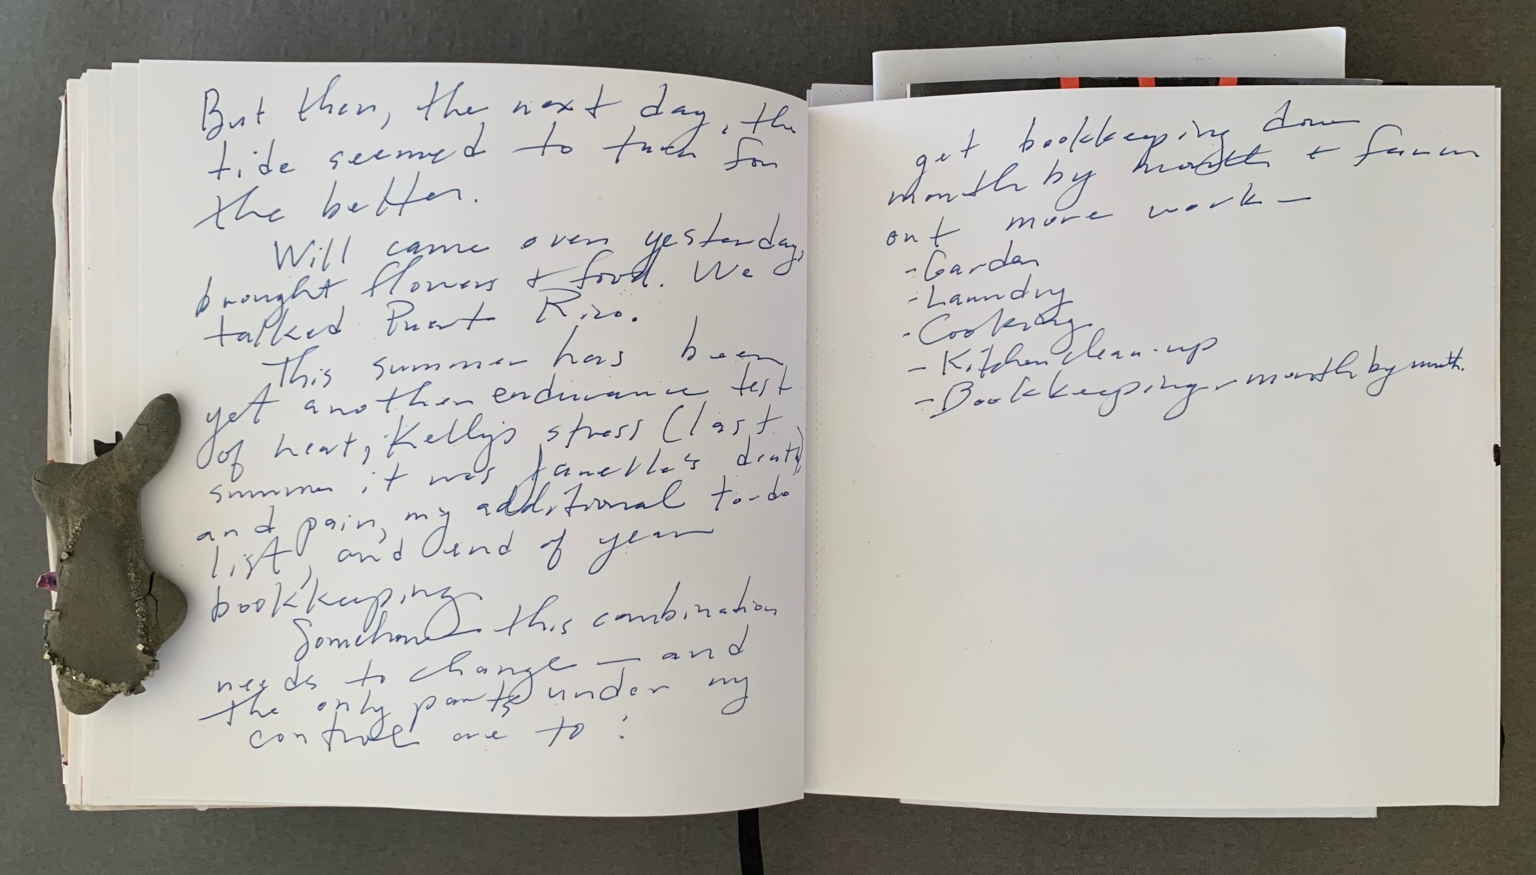 But then, the next day, the
tide seemed to turn for
the better.
Will came over yesterday,
brought flowers + food. We
talked Puert Rico.
This summer has been
yet another endurance test
of heat, Kelly's stress (last
summer it was Janella's death)
and pain, my additional to-do
list, and end of year
bookkeeping.
Somehow this combination
needs to change — and
the only parts under my
control are to :
get bookkeeping done
month by month + farm
out more work —
- Garden
- Laundry
- Cooking
- Kitchen clean-up
- Bookkeeping - month by month.